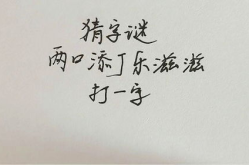 猜字谜
两口添丁乐滋滋
打一字